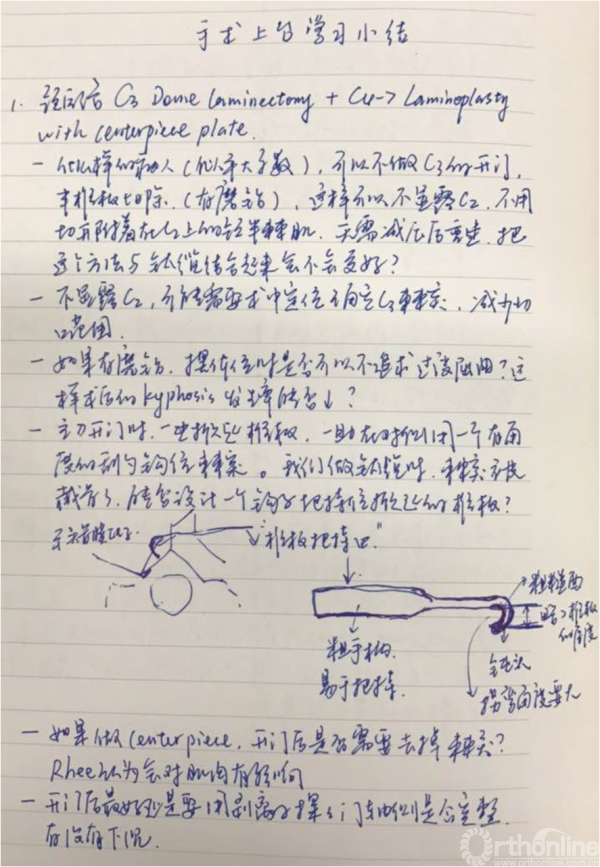 手术上台学习小结
1. 颈后路 C3 Dome laminectomy + C4-7 Laminoplasty
with centerpiece plate.
- 他这样的病人(似乎大多数), 可以不做C3的开门,
半椎板切除. (有磨钻), 这样可以不显露C2, 不用
切开附着在C2上的颈半棘肌. 无需减压后重建. 把
这个方法与钛缆结合起来会不会更好?
- 不显露C2, 可能需要术中定位予确定C3棘突, 减少切
口范围.
- 如果有磨钻, 摆体位时是否可以不追求过度屈曲? 这
样术后的kyphosis发生率能否↓?
- 主刀开门时, 一边掀起椎板, 一助在对侧用一个有角
度的刮勺钩住棘突. 我们做钛缆时, 棘突被
截了, 能否设计一个钩子把持住掀起的椎板?
"椎板把持器"
粗糙面
略>椎板
的厚度
粗手柄
易于把持.
钝头
拐弯角度要大
- 如果做Centerpiece, 开门后是否需要去掉棘突?
Rhee认为会对肌肉有影响
- 开门后最好还是要用剥离子探之门轴侧是否完整,
有没有下沉.
Orthonline